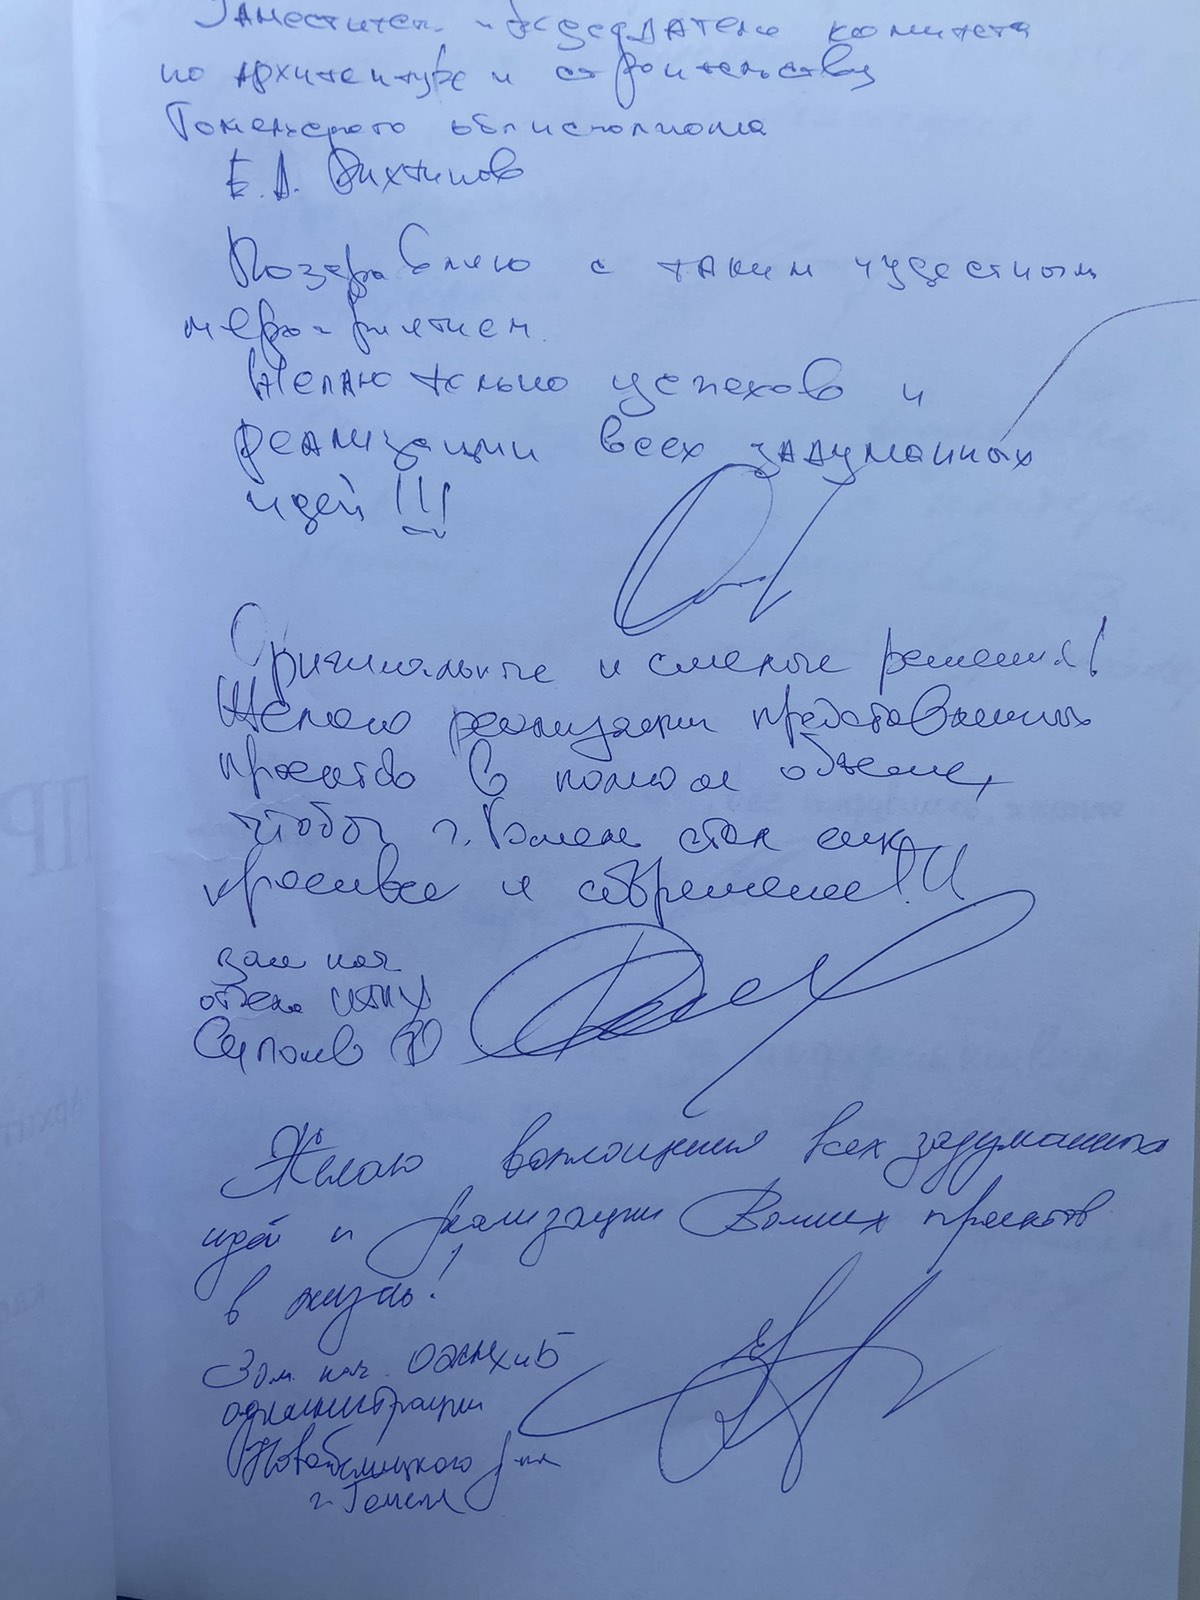 Заместител. председателя комитета
по архитектуре и строительству
Гомельского облисполкома
Е.А.
Поздравляю с таким чудестным
мероприятием.
Желаю только успехов и
реализации всех задуманных
идей!!!
Оригинальные и смелые решения!
Желаю реализации представленных
проектов в полном объеме,
чтобы г. Гомель стал еще
красивее и современнее!!!
зам нач
отдела
Желаю воплощения всех задуманных
идей и реализации Ваших проектов
в жизнь!
Зам. нач.
администрации
Новобелицкого р-на
г. Гомеля